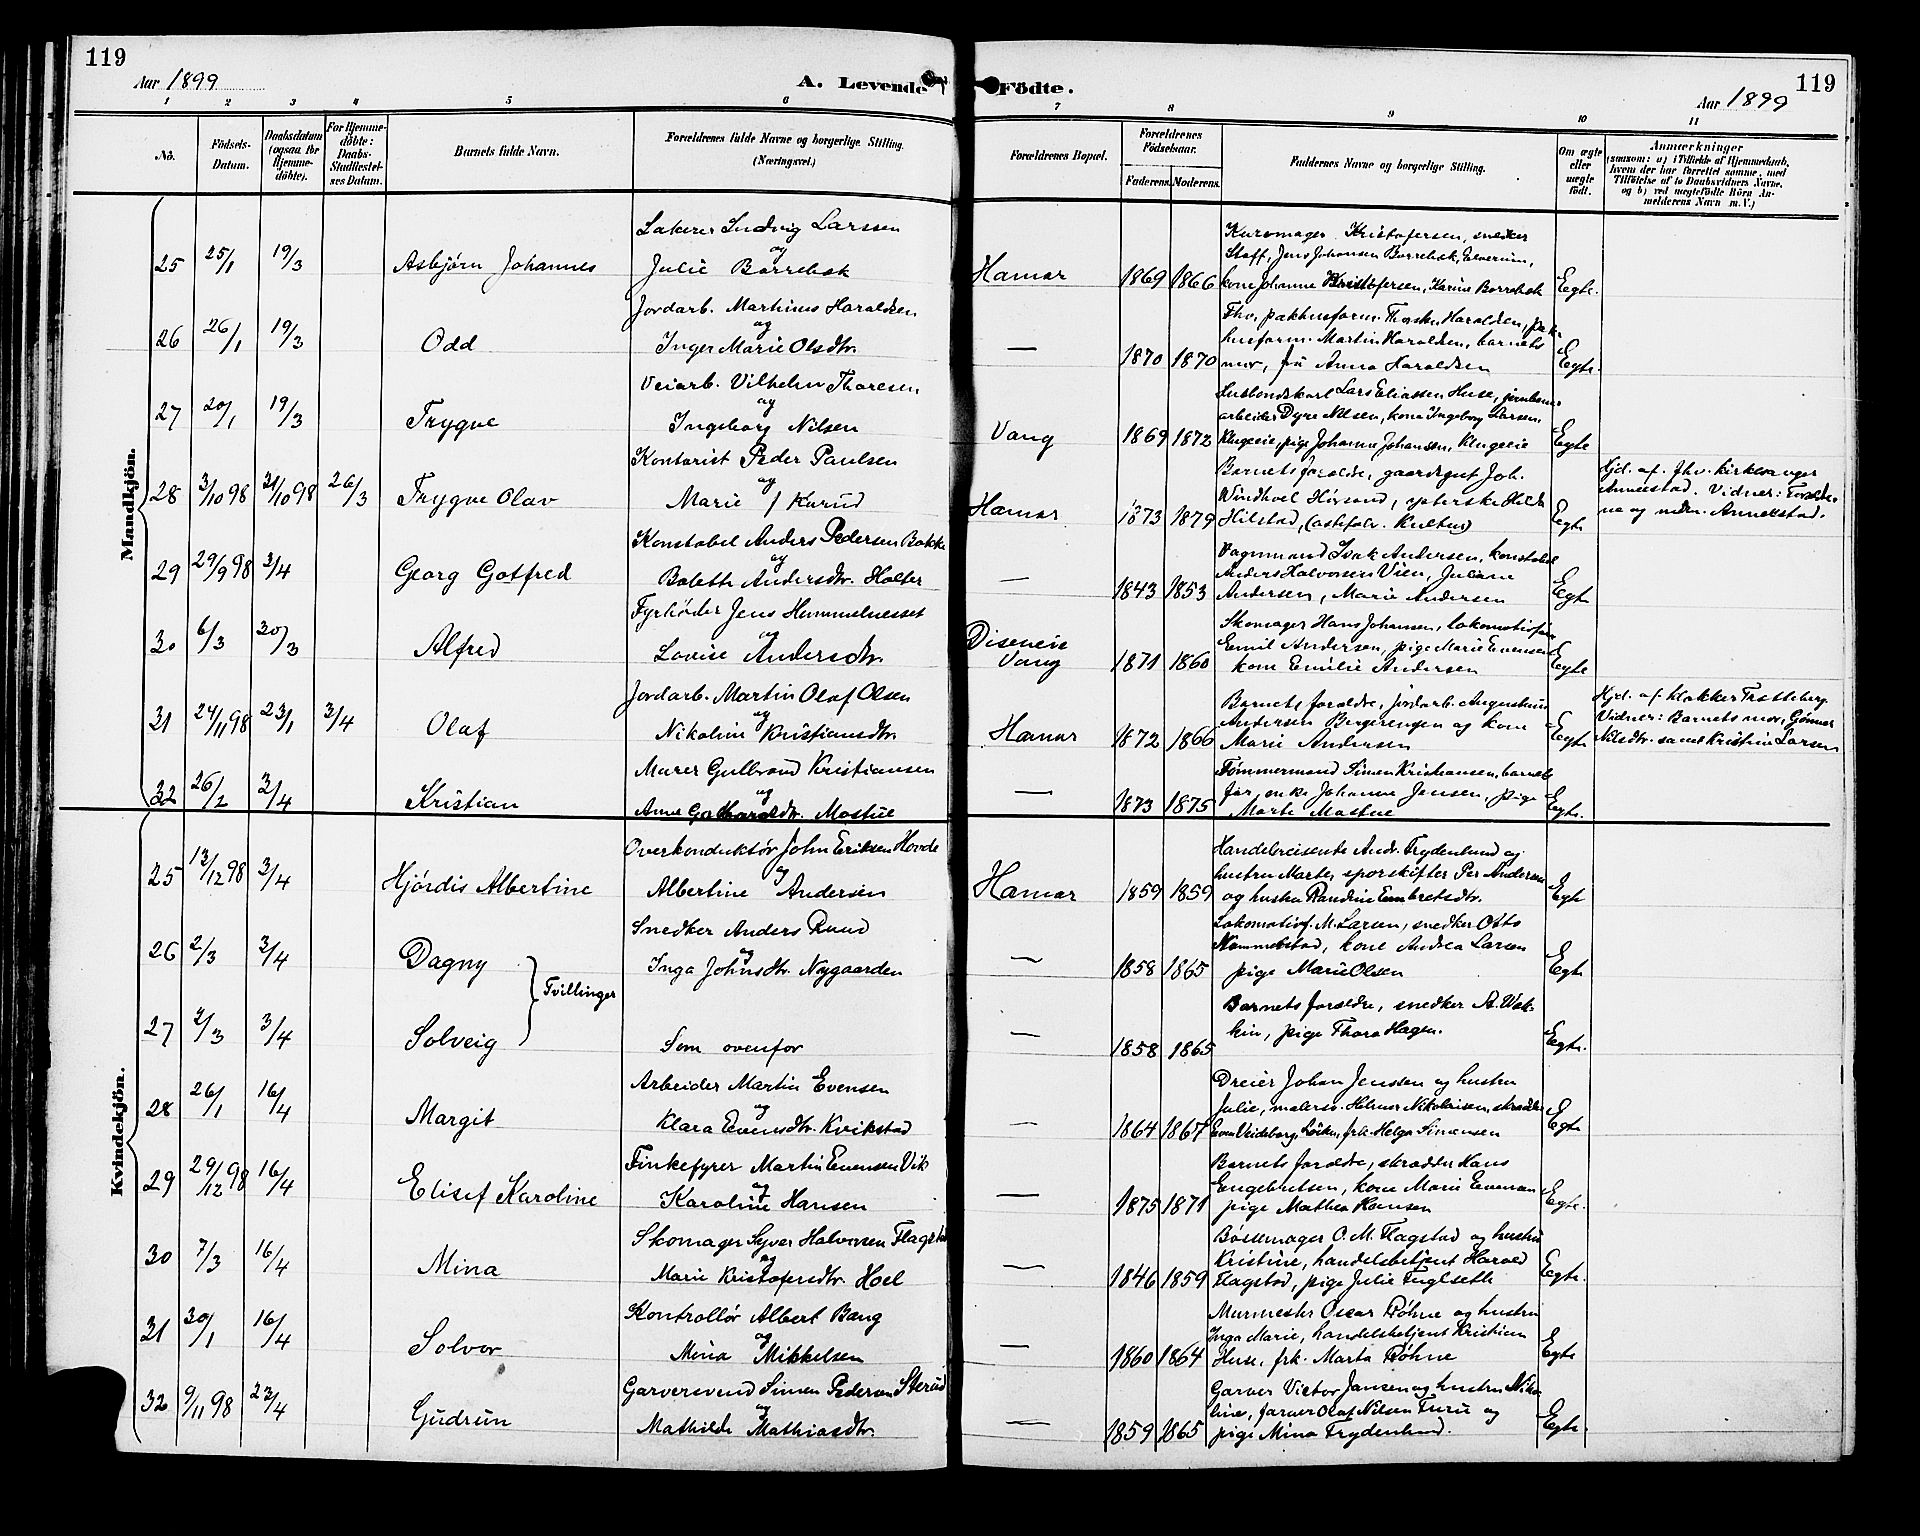 119
Aar 1899
A. Levende Födte.
119
Aar 1899
1 2 3 4 5 6 7 8 9 10 11
No.
Födsels-Datum.
Daabsdatum (ogsaa for Hjemmedöbte).
For Hjemmedöbte: Daabs-Stadfæstelses Datum.
Barnets fulde Navn.
Forældrenes fulde Navne og borgerlige Stilling. (Næringsvei.)
Forældrenes Bopæl.
Forældrenes Födselsaar.
Faderens. Moderens.
Faddernes Navne og borgerlige Stilling.
Om ægte eller uægte födt.
Anmærkninger
(saasom: a) i Tilfælde af Hjemmedaab, hvem der har forrettet samme, med Tilföielse af to Daabsvidners Navne, og b) ved uægtefödte Börn Anmelderens Navn m. V.)
Mandkjön.
25 25/1 19/3 Asbjørn Johannes
Lakerer Ludvig Larssen
og
Julie Borrebæk
Hamar 1869 1866
Kristofersen, snedker
Staff, Jens Johansen Borrebæk, Elverum,
kone Johanne Kristofersen, Karine Borrebæk
Egte.
26 26/1 19/3 Odd
Jordarb. Martinus Haraldsen
og
Inger Marie Olsdtr.
— 1870 1870
Fhv. pakhusform. Haraldsen, pak-
husform. Martin Haraldsen, barnets
mor, fru Anna Haraldsen
Egte.
27 20/1 19/3 Trygve
Veiarb. Vilhelm Thoresen
og
Ingeborg Nilsen
Vang 1869 1872
Lars Eliassen Huse, jernbane-
arbeider Dyre Nilsen, kone Ingeborg Larsen
Klugeeie, pige Johanne Johansen, Klugeeie
Egte
28 3/10 98 31/10 98 26/3 Trygve Olav
Kontorist Peder Paulsen
og
Marie f Karud
Hamar 1873 1879
Barnets forældre, gaardsgut Joh.
Hilstad,
Egte
Hjd. af fhv. kirkesanger
Annekstad. Vidner: Forældre-
ne og Annekstad.
29 29/9 98 3/4 Georg Gotfred
Konstabel Anders Pedersen Bakke
og
Bolette Andersdtr. Holter
— 1843 1853
Vognmand Isak Andersen, konstabel
Anders Halvorsen Vien, Juliane
Andersen, Marie Andersen
Egte
30 6/3 30/3 Alfred
Fyrbøder Jens Hemmelnesset
og
Lovise Andersdtr.
Diseneie
Vang 1871 1860
Skomager Hans Johansen, lokomotivfører
Emil Andersen, pige Marie Evensen
kone Emilie Andersen
Egte
31 24/11 98 23/1 3/4 Olaf
Jordarb. Martin Olaf Olsen
og
Nikoline Kristiansdtr.
Hamar 1872 1866
Barnets forældre, jordarb. Augustinus
Andersen Bergerengen og kone
Marie Andersen
Egte
Hjd. af klokker Tretteberg
Vidner: Barnets mor, Gønner
Nilsdtr. samt Kristine Larsen
32 26/2 3/4 Kristian
Murer Gulbrand Kristiansen
og
Anne Mostue
— 1873 1875
Tømmermand Simen Kristiansen, barnets
far, enke Johanne Jensen, pige
Marte Mostue
Egte.
Kvindekjön.
25 13/12 98 3/4 Hjørdis Albertine
Overkonduktør John Eriksen Hovde
og
Albertine Andersen
Hamar 1859 1859
Handelsreisende Andr. Frydenlund og
hustru Marte, sporskifter Per Andersen
og hustru Randine Embretsdtr.
Egte
26 2/3 3/4 Dagny
Snedker Anders Ruud
og
Inga Johnsdtr. Nygaarden
— 1858 1865
Lokomotivf. M. Larsen, snedker Otto
kone Andrea Larsen
pige Marie Olsen
Egte
Tvillinger
27 2/3 3/4 Solveig
Som ovenfor
— 1858 1865
Barnets forældre, snedker A. Vek-
kin, pige Thora Hagen.
Egte.
28 26/1 16/4 Margit
Arbeider Martin Evensen
og
Klara Evensdtr. Kvikstad
— 1864 1867
Dreier Johan Jenssen og hustru
Julie, malersv. Helmer Nikolaisen, skrædder
Even Veideborg, Løiten, frk. Helga Simensen
Egte
29 29/12 98 16/4 Elisef Karoline
Finkefyrer Martin Evensen Vik
og
Karoline Hansen
— 1875 1871
Barnets forældre, skrædder Hans
Engebretsen, kone Marie Evensen
pige Mathea Hansen
Egte.
30 7/3 16/4 Mina
Skomager Syver Halvorsen Flagstad
og
Marie Kristofersdtr. Hoel
— 1846 1859
Bøssemager O. M. Flagstad og hustru
Kristine, handelsbetjent Harald
Flagstad, pige Julie Fuglseth
Egte.
31 30/1 16/4 Solvor
Kontrollør Albert Bang
og
Mina Mikkelsen
— 1860 1864
Murmester Oscar Røhne og hustru
Inga Marie, handelsbetjent Kristian
Huse, frk. Marta Røhne
Egte
32 9/11 98 23/4 Gudrun
Garversvend Simen Pedersen Sterud
og
Mathilde Mathiasdtr.
— 1859 1865
Garver Victor Jansen og hustru Niko-
line, farver Olaf Nilsen Furu og
pige Mina Frydenlund.
Egte.